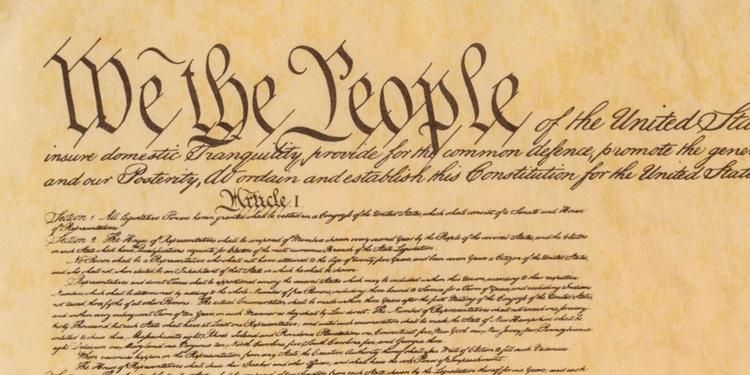 We the People of the United Sta
insure domestic Tranquility, provide for the common defence, promote the gene
and our Posterity, do ordain and establish this Constitution for the United State
Article I
Section 1 All legislative Powers herein granted shall be vested in a Congress of the United States, which shall consist of a Senate and House
of Representatives
Section 2 The House of Representatives shall be composed of Members chosen every second Year by the People of the several States, and the Electors
in each State shall have Qualifications requisite for Electors of the most numerous Branch of the State Legislature
No Person shall be a Representative who shall not have attained to the Age of twenty five Years and been seven Years a Citizen of the United States,
and who shall not, when elected, be an Inhabitant of that State in which he shall be chosen
Representatives and direct Taxes shall be apportioned among the several States which may be included within this Union, according to their respective
Numbers, which shall be determined by adding to the whole Number of free Persons, including those bound to Service for a Term of Years, and excluding Indians
not taxed, three fifths of all other Persons. The actual Enumeration shall be made within three Years after the first Meeting of the Congress of the United States,
and within every subsequent Term of ten Years, in such Manner as they shall by Law direct. The Number of Representatives shall not exceed one for every
thirty Thousand, but each State shall have at Least one Representative; and until such enumeration shall be made, the State of New Hampshire shall be
entitled to chuse three, Massachusetts eight, Rhode Island and Providence Plantations one, Connecticut five, New York six, New Jersey four, Pennsylvania
eight, Delaware one, Maryland six, Virginia ten, North Carolina five, South Carolina five, and Georgia three.
When vacancies happen in the Representation from any State, the Executive Authority thereof shall issue Writs of Election to fill such Vacancies.
The House of Representatives shall chuse their Speaker and other Officers; and shall have the sole Power of Impeachment.